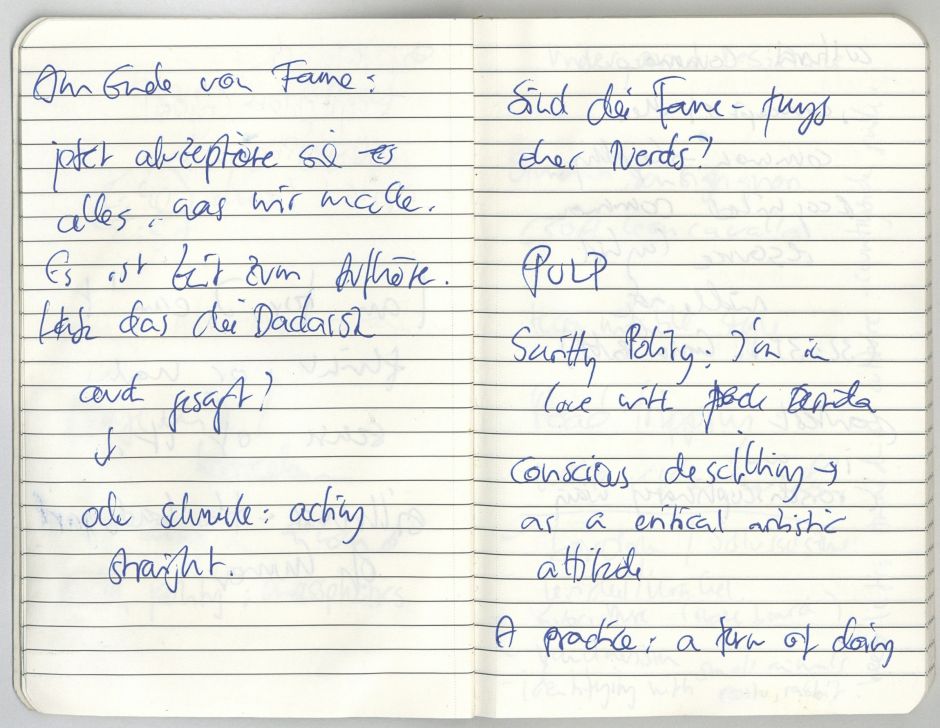 Am Ende von Fame:
jetzt akzeptiere sie es
alles, was wir mache.
Es ist Zeit zum Aufhöre.
das die Dadaisz
auch gesagt?
↓
ode schwule: acting
straight.
Sind die Fame-
eher Nerds?
PULP
Scritty Polity: I'm in
love with Derrida
conscious deskilling →
as a critical artistic
attitude
A practice: a form of doing